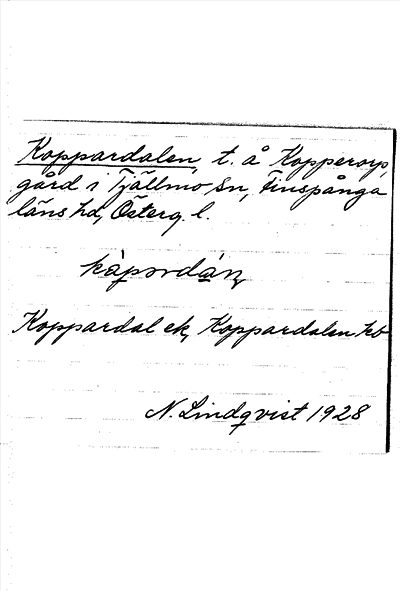 Koppardalen, t. å Kopperorp,
gård i Tjällmo sn, Finspånga
läns hd, Österg. l.
kàpərdán,
Koppardal ek, Koppardalen kb
N. Lindqvist 1928